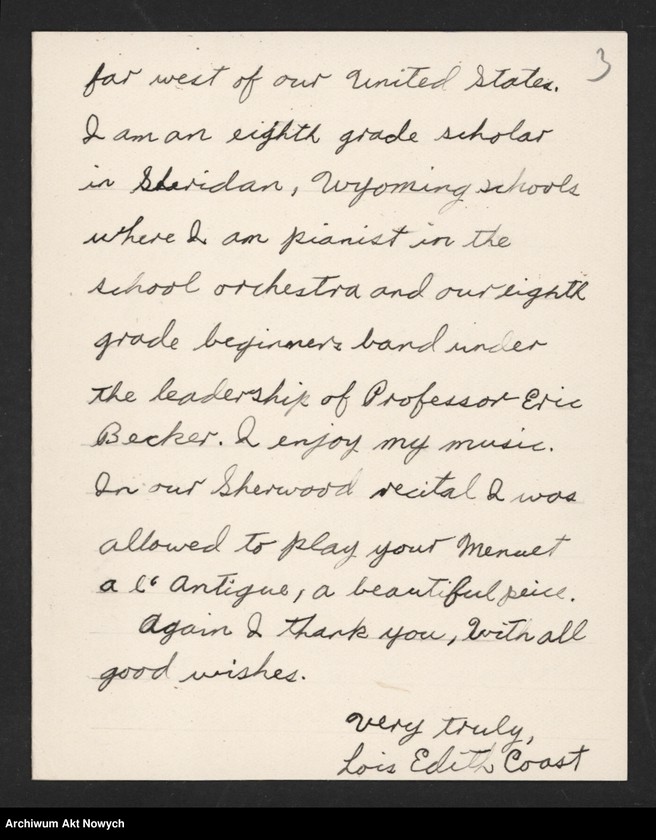 3
far west of our United States.
I am an eighth grade scholar
in Sheridan, Wyoming schools
where I am pianist in the
school orchestra and our eighth
grade beginners band under
the leadership of Professor Eric
Becker. I enjoy my music.
In our Sherwood recital I was
allowed to play your Menuet
a l‘ Antique, a beautiful peice.
Again I thank you, With all
good wishes.
Very truly,
Lois Edith Coast
Archiwum Akt Nowych